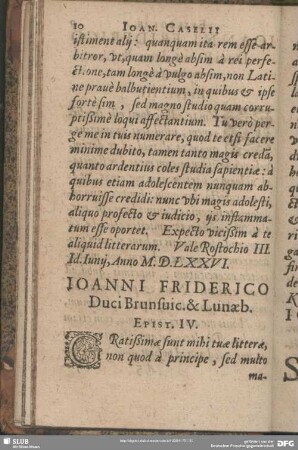 10 IOAN. CASELII
istiment alij: quanquam ita rem esse ar-
bitror, vt, quam longè absim à rei perfe-
ctione, tam longè à vulgo absim, non Lati-
ne prauè balbutientium, in quibus & ipse
fortè sim, sed magno studio quam corru-
ptißimè loqui affectantium. Tu verò per-
ge me in tuis numerare, quod te etsi facere
minime dubito, tamen tanto magis credã,
quanto ardentius coles studia sapientiæ: à
quibus etiam adolescentem nunquam ab-
horruisse credidi: nunc vbi magis adolesti,
aliquo profecto & iudicio, ijs inflamma-
tum esse oportet. Expecto vicißim à te
aliquid litterarum. Vale Rostochio III.
Id. Iunij, Anno M.D.LXXVI.
IOANNI FRIDERICO
Duci Brunsuic. & Lunæb.
EPIST. IV.
GRatißimæ sunt mihi tuæ litteræ,
non quod à principe, sed multo
ma-
SLUB
Wir führen Wissen.
gefördert von der
Deutschen Forschungsgemeinschaft
DFG